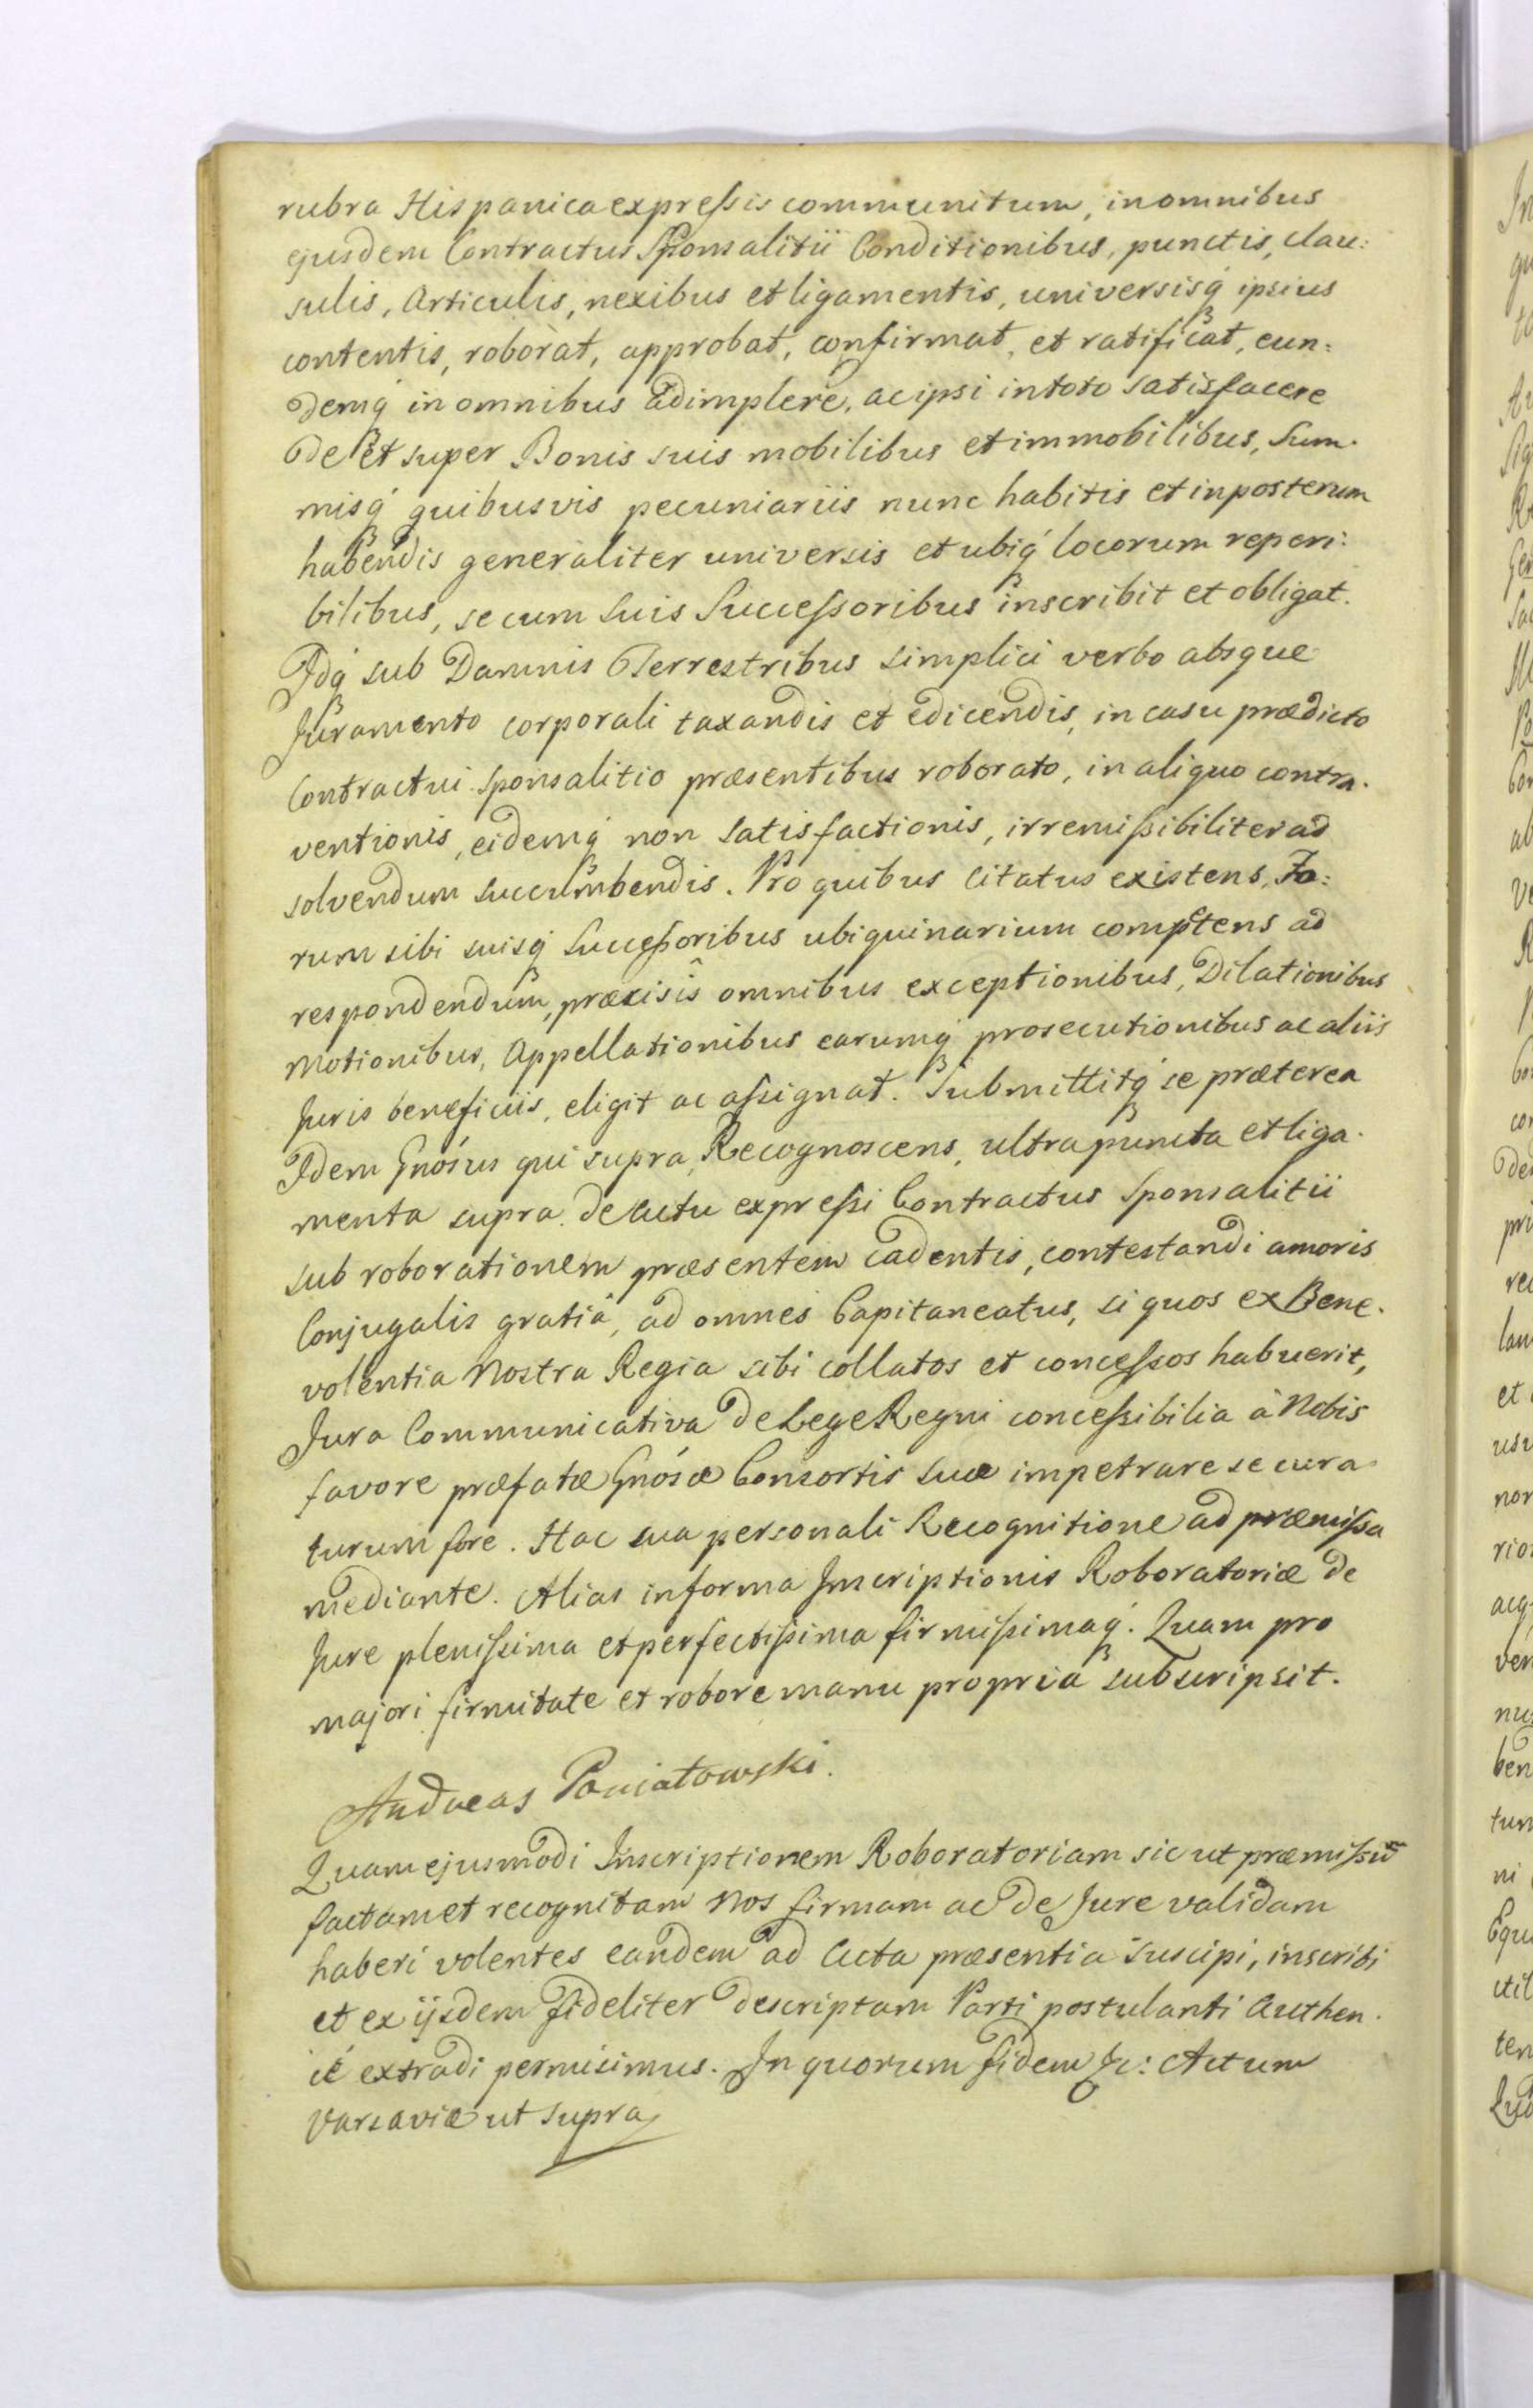 rubra Hispanica expressis communitum, in omnibus
ejusdem Contractus Sponsalitii Conditionibus, punctis, clau:
sulis, Articulis, nexibus et ligamentis, universisq́ ipsius
contentis, roborat, approbat, confirmat, et ratificat, eun:
demq́ in omnibus adimplere, ac ipsi in toto satisfacere
de et super Bonis suis mobilibus et immobilibus, Sum-
misq́ quibusvis pecuniariis nunc habitis et inposterum
habendis generaliter universis et ubiq́ locorum reperi:
bilibus, se cum suis Successoribus inscribit et obligat.
Idq́ sub Damnis Terrestribus simplici verbo absque
Juramento corporali taxandis et edicendis, in casu prædicto
Contractui Sponsalitio præsentibus roborato, in aliquo contra-
ventionis, eidemq́ non satisfactionis, irremissibiliter ad
solvendum succumbendis. Pro quibus citatus existens, Fo:
rum sibi suisq́ Successoribus ubiquinarium competens ad
respondendum, præcisîs omnibus exceptionibus, Dilationibus
Motionibus, Appellationibus earumq́ prosecutionibus ac aliis
Juris beneficiis, eligit ac assignat. Submittitq́ se præterea
Idem Gnósus qui supra Recognoscens, ultra puncta et liga-
menta supra de actu expressi Contractus Sponsalitii
sub roborationem præsentem cadentis, contestandi amoris
Conjugalis gratiâ, ad omnes Capitaneatus, si quos ex Bene-
volentia Nostra Regia sibi collatos et concessos habuerit,
Jura Communicativa de Lege Regni concessibilia à Nobis
favore præfatæ Gnósæ Consortis suæ impetrare se cura-
turum fore. Hac sua personali Recognitione ad præmissa
mediante. Alias in forma Inscriptionis Roboratoriæ de
Jure plenissima et perfectissima firmissimaq́. Quam pro
majori firmitate et robore manu propria subscripsit.
Andreas Poniatowski.
Quam ejusmodi Inscriptionem Roboratoriam sic ut præmissū
factam et recognitam Nos firmam ac de Jure validam
haberi volentes eandem ad Acta præsentia suscipi, inscribi
et ex ijsdem fideliter descriptam Parti postulanti Authen-
icé extradi permisimus. In quorum fidem &c: Actum
Varsaviæ ut supra